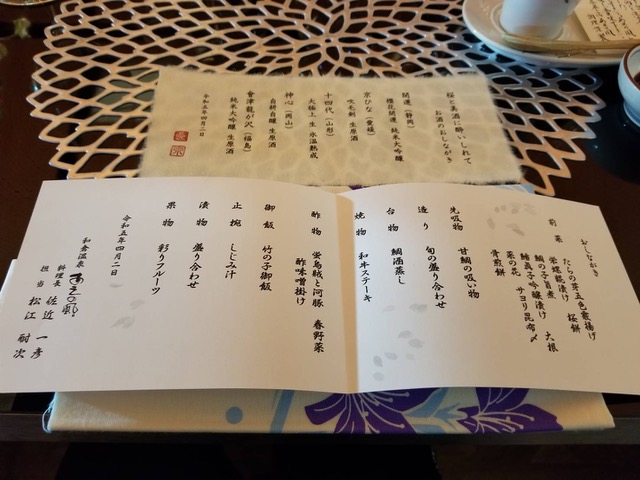 桜と美酒に酔いしれて
お酒のおしながき
開運（静岡）
櫻花開運 純米大吟醸
京ひな（愛媛）
吹毛剣 生原酒
十四代（山形）
大極上生 氷温熟成
神心（岡山）
自耕自醸 生原酒
會津龍が沢（福島）
純米大吟醸 生原酒
令和五年四月二日
おしながき
前菜 たらの芽五色霰揚げ
栄螺麹漬け 桜餅
鯛の子旨煮
鱚真子吟醸漬け 大根
菜の花 サヨリ昆布〆
骨煎餅
先吸物 甘鯛の吸い物
造り 旬の盛り合わせ
台物 鯛酒蒸し
焼物 和牛ステーキ
酢物 蛍烏賊と河豚 春野菜
酢味噌掛け
御飯 竹の子御飯
止椀 しじみ汁
漬物 盛り合わせ
果物 彩りフルーツ
令和五年四月二日
和食温泉
料理長 佐近 一彦
担当 松江 耐次